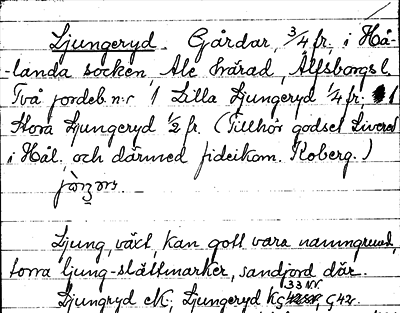 Ljungeryd. Gårdar, 3/4 fr, i Hå-
-landa socken, Ale härad, Älfsborgs l.
Två jordeb. n:r 1 Lilla Ljungeryd 1/4 fr; 1
Stora Ljungeryd 1/2 fr. (Tillhör godset Livered
i Hål. och därmed fideikom. Koberg.)
Ljung, växt, kan gott vara namngrund,
torra ljung-slättmarker, sandjord där.
Ljungryd eK; Ljungeryd KG 33 NV. G42.